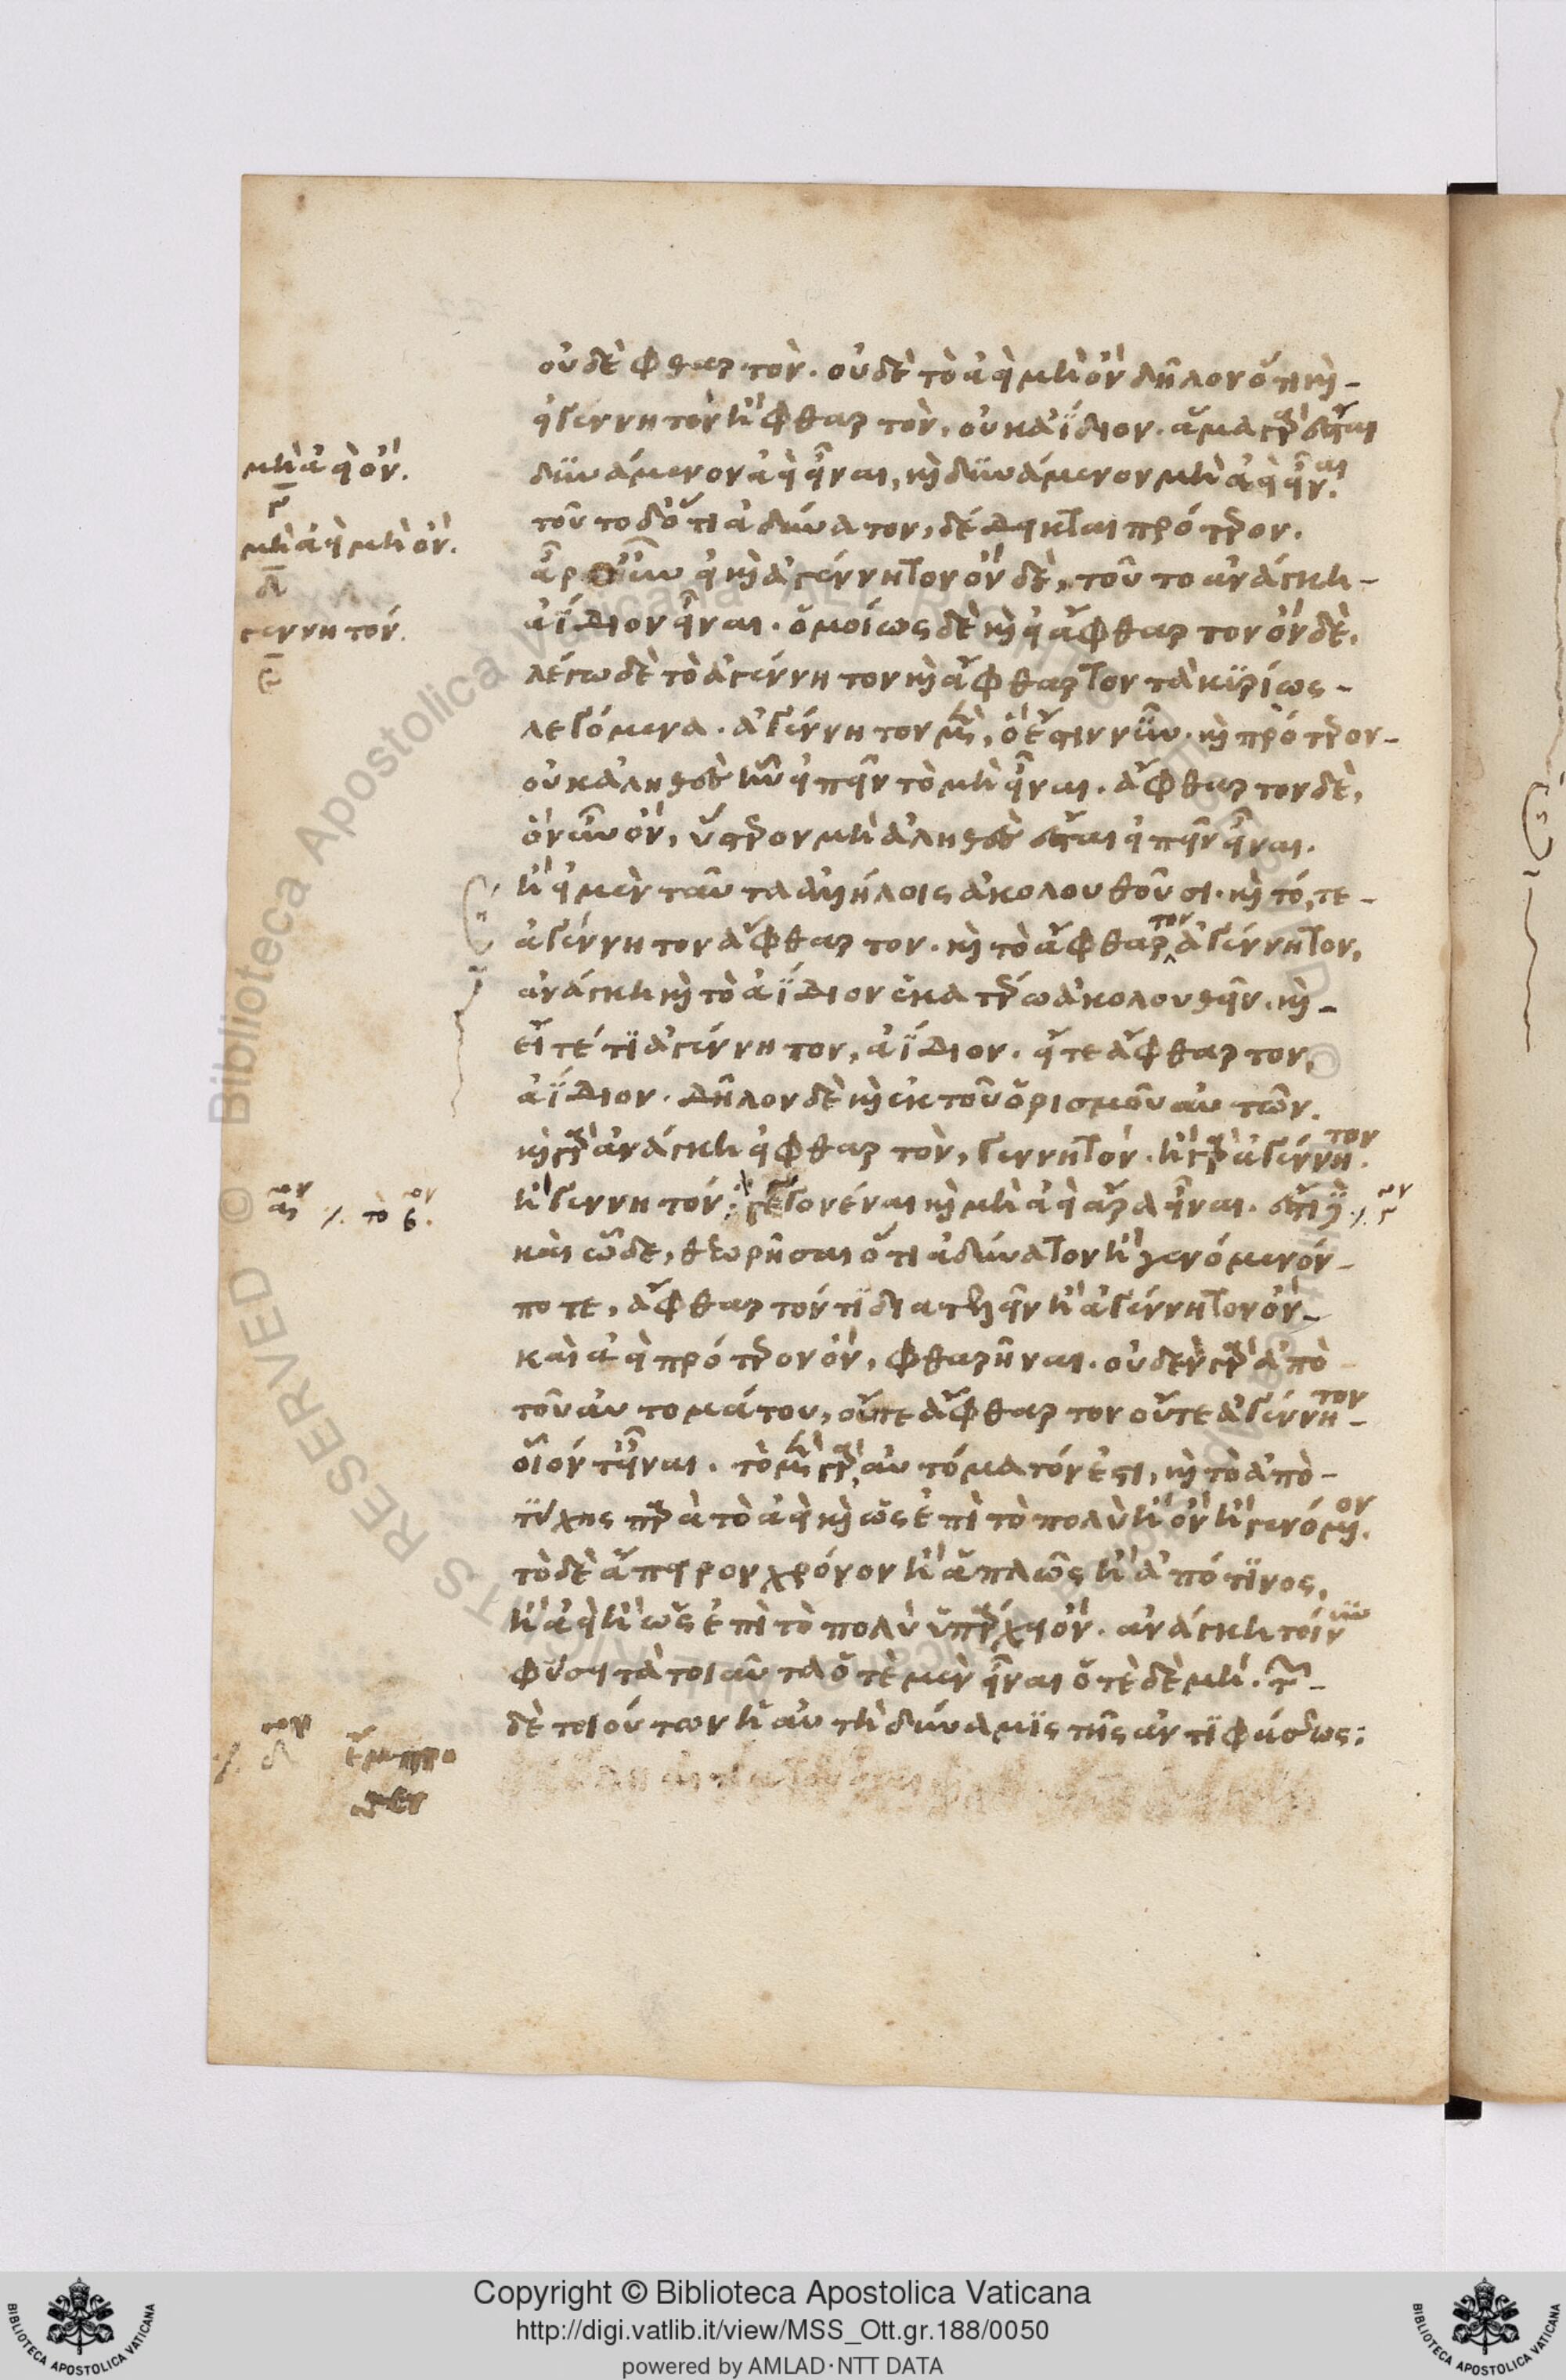 οὐδὲ φθαρτόν. οὐδὲ τὸ ἀεὶ μὴ ὄν. δῆλον ὅτι καὶ
εἰ γεννητὸν ἢ φθαρτόν, οὐκ ἀΐδιον. ἅμα γὰρ ἔσται
δυνάμενον ἀεὶ εἶναι, καὶ δυνάμενον μὴ ἀεὶ εἶναι.
τοῦτο δ' ὅτι ἀδύνατον, δέδεικται πρότερον.
ἆρ οὖν εἰ καὶ ἀγέννητον ὂν δὲ, τοῦτο ἀνάγκη
ἀΐδιον εἶναι. ὁμοίως δὲ καὶ εἰ ἄφθαρτον ὂν δὲ.
λέγω δὲ τὸ ἀγέννητον καὶ ἄφθαρτον τὰ κυρίως
λεγόμενα. ἀγέννητον μὲν, ὃ ἔστιν νῦν. καὶ πρότερον
οὐκ ἀληθὲς ἦν εἰπεῖν τὸ μὴ εἶναι. ἄφθαρτον δὲ,
ὃ νῦν ὂν, ὕστερον μὴ ἀληθὲς ἔσται εἰπεῖν εἶναι.
ἢ εἰ μὲν ταῦτα ἀλλήλοις ἀκολουθοῦσι. καὶ τό, τε
ἀγέννητον ἄφθαρτον. καὶ τὸ ἄφθαρτον ἀγέννητον,
ἀνάγκη καὶ τὸ ἀΐδιον ἑκατέρω ἀκολουθεῖν. καὶ
εἴ τέ τι ἀγέννητον, ἀΐδιον. εἴ τε ἄφθαρτον,
ἀΐδιον. δῆλον δὲ καὶ ἐκ τοῦ ὁρισμοῦ αὐτῶν.
καὶ γὰρ ἀνάγκη εἰ φθαρτόν, γεννητόν. ἢ γὰρ ἀγέννητον.
ἢ γεννητόν·
καὶ ὧδε, θεωρῆσαι ὅτι ἀδύνατον ἢ γενόμενόν
ποτε, ἄφθαρτόν τι διατελεῖν ἢ ἀγέννητον ὂν
καὶ ἀεὶ πρότερον ὂν, φθαρῆναι. οὐδὲν γὰρ ἀπὸ
τοῦ αὐτομάτου, οὔτε ἄφθαρτον οὔτε ἀγέννητον
οἷόν τ' εἶναι. τὸ μὲν γὰρ αὐτόματόν ἐστι, καὶ τὸ ἀπὸ
τύχης παρὰ τὸ ἀεὶ καὶ ὡς ἐπὶ τὸ πολὺ ἢ ὂν ἢ γενόμενον.
τὸ δὲ ἄπειρον χρόνον ἢ ἁπλῶς ἢ ἀπό τινος,
ἢ ἀεὶ ἢ ὡς ἐπὶ τὸ πολὺ ὑπάρχει ὄν. ἀνάγκη τοίνυν
φύσει τὰ τοιαῦτα ὁτὲ μὲν εἶναι ὁτὲ δὲ μή. τῶν
δὲ τοιούτων ἡ αὐτὴ δύναμις τῆς ἀντιφάσεως:
μὴ ἀεὶ ὄν.
γ
μὴ ἀεὶ μὴ ὄν.
δ
γεννητόν.
τὸ β ον.